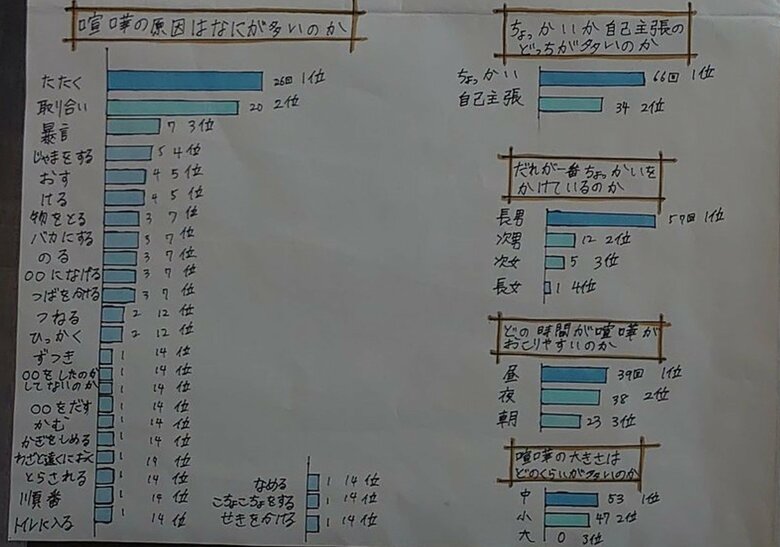 喧嘩の原因はなにが多いのか
たたく 26回 1位
取り合い 20 2位
暴言 7 3位
じゃまをする 5 4位
おす 4 5位
ける 4 5位
物をとる 3 7位
バカにする 3 7位
のる 3 7位
〇〇になげる 3 7位
つばを分ける 3 7位
つねる 2 12位
ひっかく 2 12位
ずつき 1 14位
〇〇をしたのか
してないのか 1 14位
〇〇をだす 1 14位
かむ 1 14位
かぎをしめる 1 14位
わざと遠くにおく 1 14位
とらされる 1 14位
順番 1 14位
トイレに入る 1 14位
なめる 1 14位
こちょこちょをする 1 14位
せきを分ける 1 14位
ちょっかいか自己主張の
どっちが多いのか
ちょっかい 66回 1位
自己主張 34 2位
だれが一番ちょっかいを
かけているのか
長男 57回 1位
次男 12 2位
次女 5 3位
長女 1 4位
どの時間が喧嘩が
おこりやすいのか
昼 39回 1位
夜 38 2位
朝 23 3位
喧嘩の大きさは
どのくらいが多いのか
中 53 1位
小 47 2位
大 0 3位